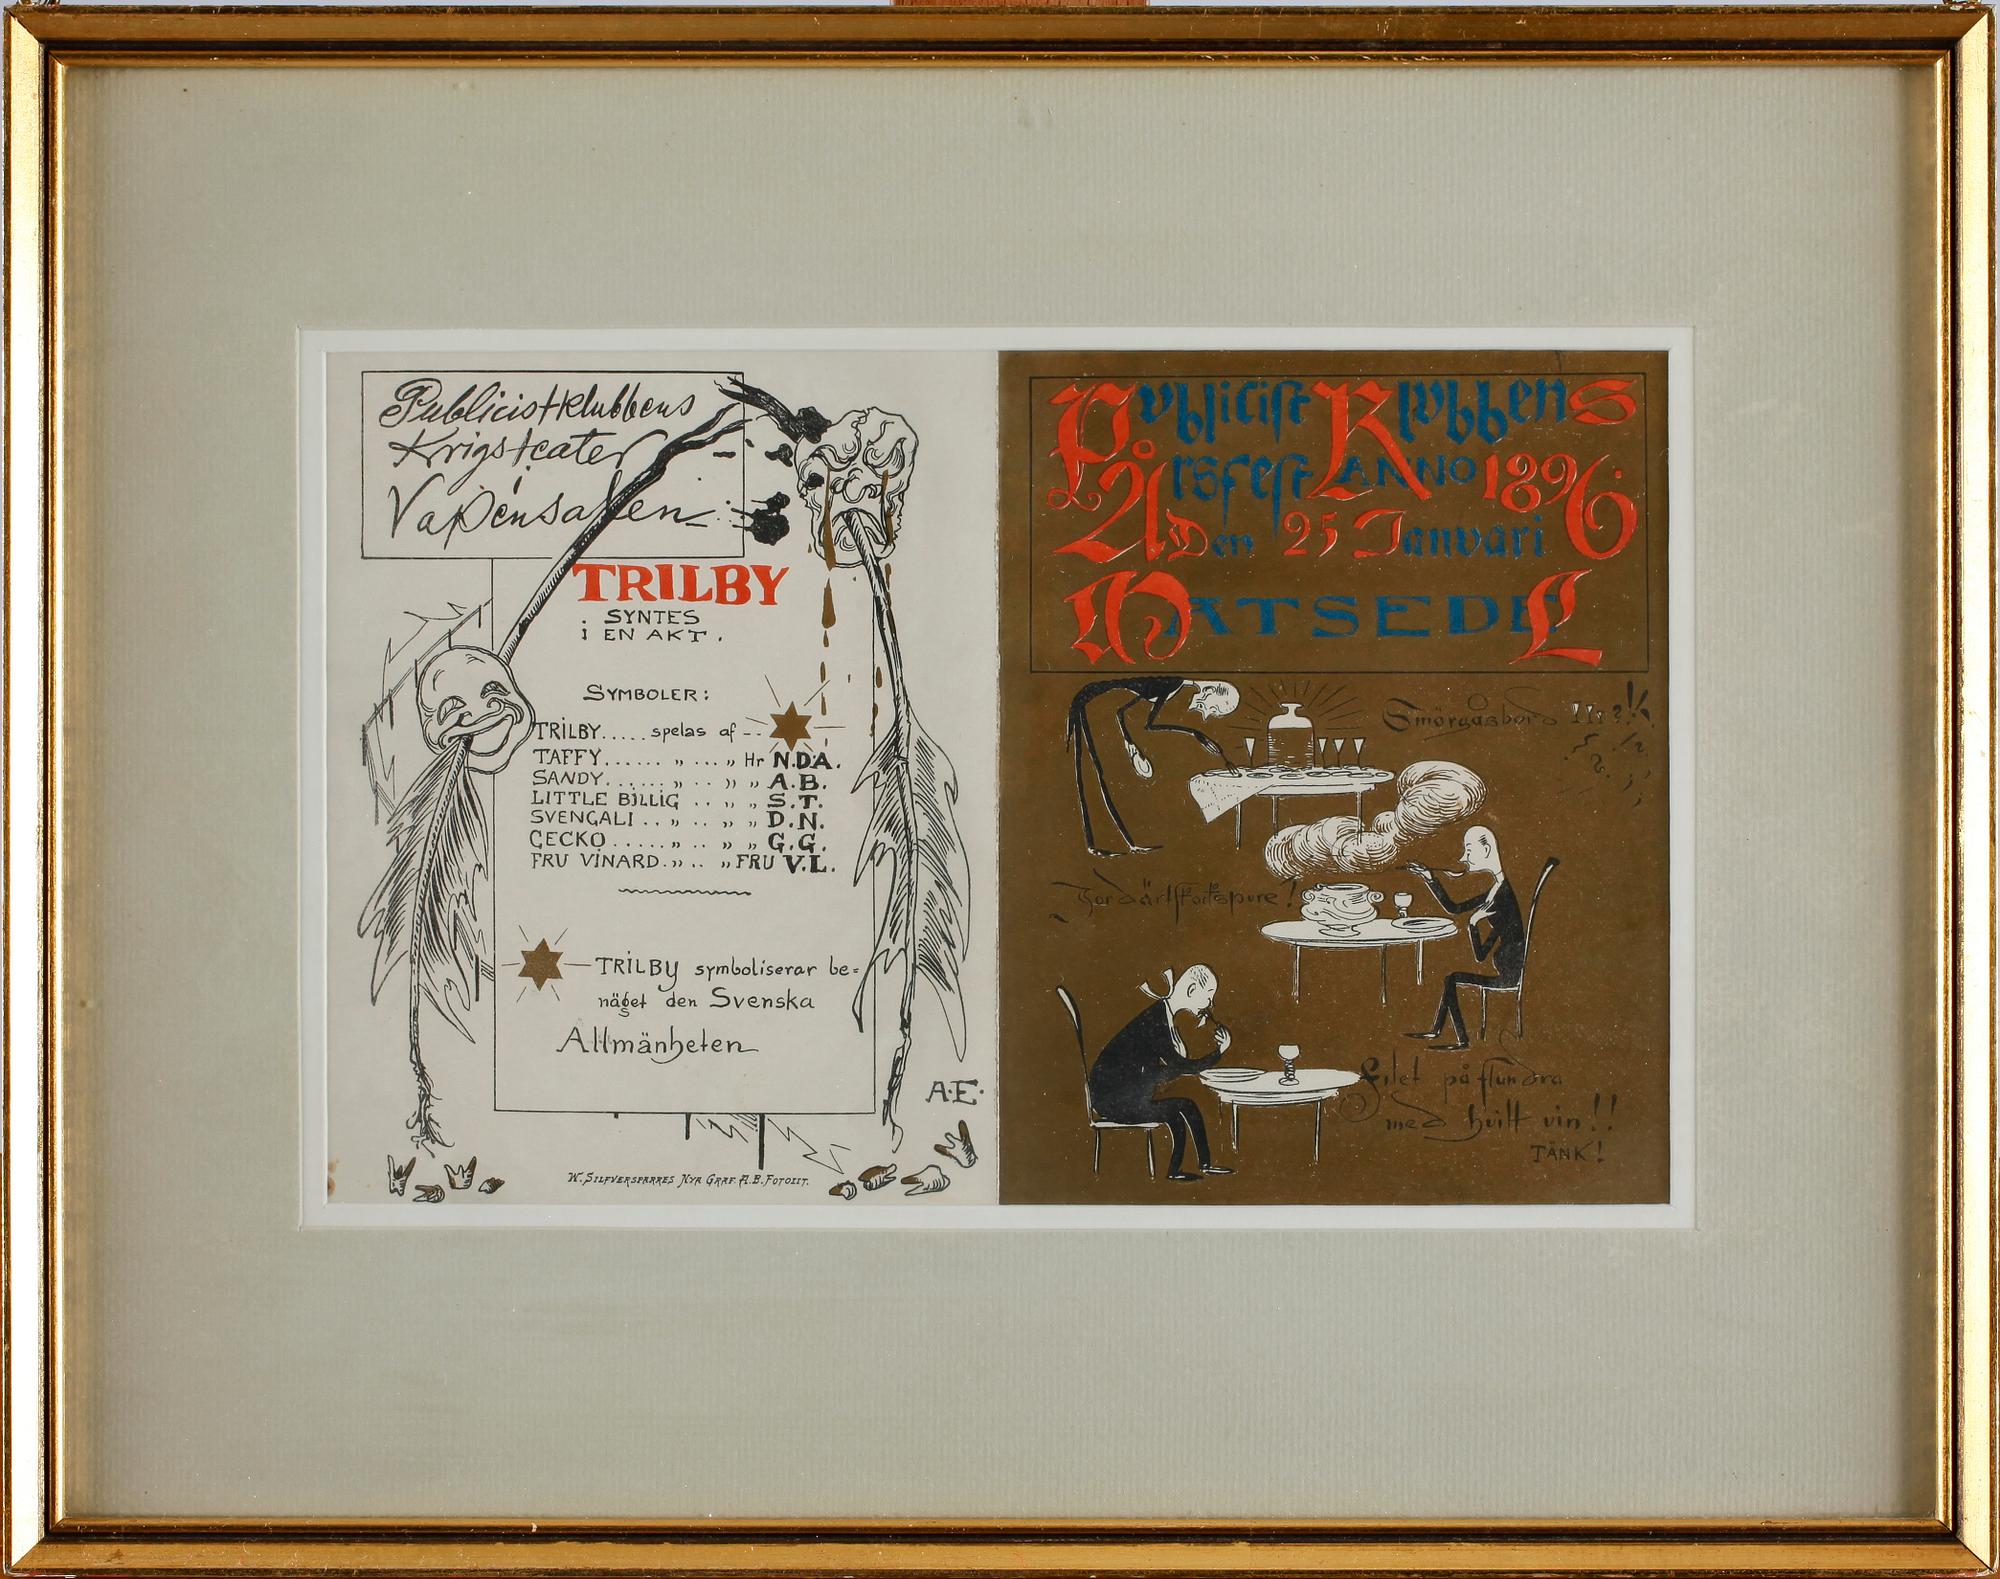 Publicistklubbens
Krigsteater
Vapensalen
TRILBY
SYNTES
i EN AKT.
SYMBOLER:
TRILBY..... spelas af --
TAFFY...... „ ... „ Hr N.D.A.
SANDY....... „ .. „ „ A.B.
LITTLE BILLIG .. „ „ S.T.
SVENGALI .. „ .. „ „ D.N.
GECKO ..... „ .. „ „ G.G.
FRU VINARD.„ .. „ FRU V.L.
TRILBY symboliserar be=
näget den Svenska
Allmänheten
A.E.
W. SILFVERSPARRES NYA GRAF. A.B. FOTOLIT.
PublicistKlubbens
Årsfest ANNO 1896.
Den 25 Januari
MATSEDEL
Smörgåsbord ?!!
Filet på flundra
med hvitt vin!!
TÄNK!